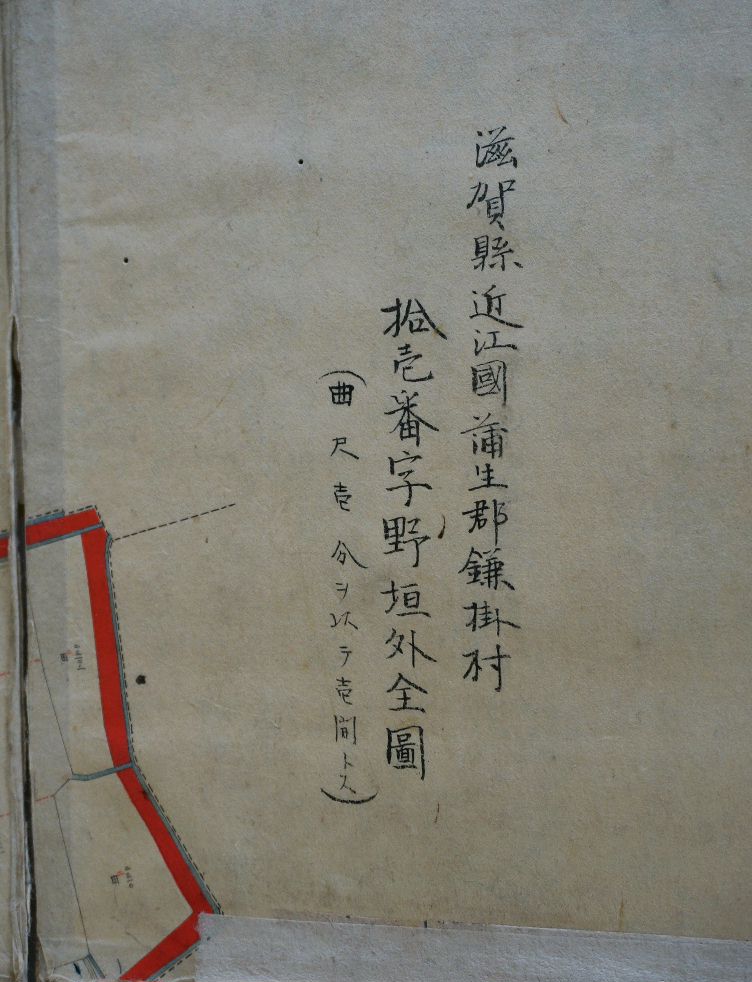 滋賀縣近江國蒲生郡鎌掛村
拾壱番字野垣外全圖
(曲尺壱分ヲ以テ壱間トス)
田
田